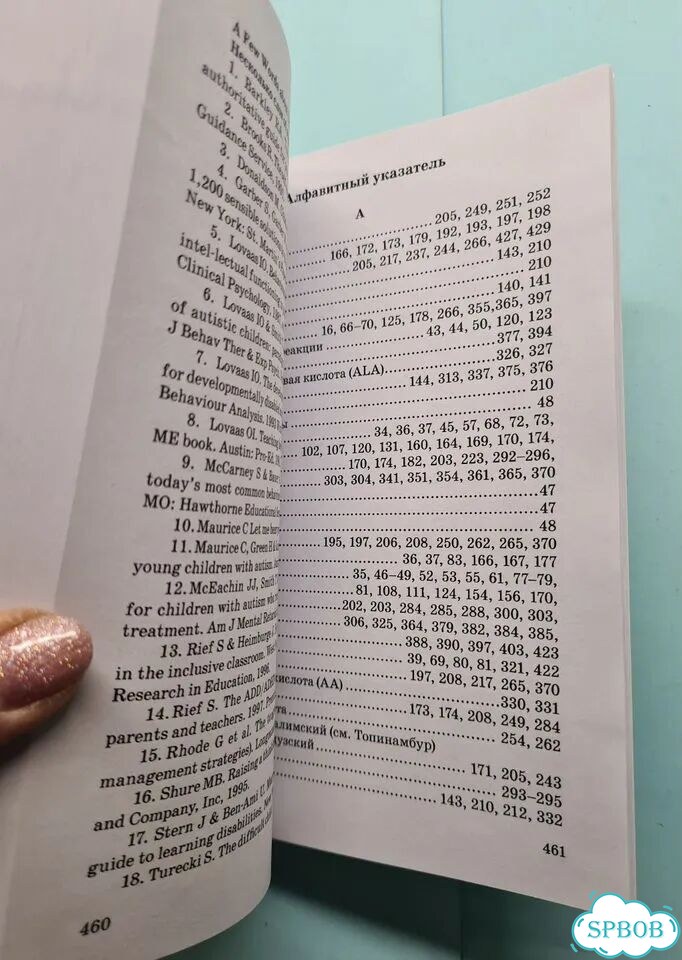 A Few Words
Несколько
1. Barkley
authoritative guide
2. Brooks R.
Guidance Service,
3. Donaldson
4. Garber S,
1,200 sensible solutions
New York: St. Martin
5. Lovaas IO.
intel-lectual functioning
Clinical Psychology.
6. Lovaas IO &
of autistic children:
J Behav Ther & Exp
7. Lovaas IO. The
for developmentally disabled
Behaviour Analysis. 1993
8. Lovaas OI. Teaching
ME book. Austin: Pro-Ed,
9. McCarney S &
today's most common
MO: Hawthorne Educational
10. Maurice C Let me hear
11. Maurice C, Green H &
young children with autism.
12. McEachin JJ, Smith
for children with autism who
treatment. Am J Mental
13. Rief S & Heimburge
in the inclusive classroom.
Research in Education, 1996.
14. Rief S. The ADD/
parents and teachers. 1997.
15. Rhode G et al. The
management strategies).
16. Shure MB. Raising a
and Company, Inc, 1995.
17. Stern J & Ben-Ami U.
guide to learning disabilities.
18. Turecki S. The difficult
460
Алфавитный указатель
А
205, 249, 251, 252
166, 172, 173, 179, 192, 193, 197, 198
205, 217, 237, 244, 266, 427, 429
143, 210
210
140, 141
16, 66–70, 125, 178, 266, 355,365, 397
реакции 43, 44, 50, 120, 123
377, 394
вая кислота (ALA) 326, 327
144, 313, 337, 375, 376
210
ы 48
34, 36, 37, 45, 57, 68, 72, 73,
102, 107, 120, 131, 160, 164, 169, 170, 174,
170, 174, 182, 203, 223, 292–296,
303, 304, 341, 351, 354, 361, 365, 370
47
47
48
195, 197, 206, 208, 250, 262, 265, 370
36, 37, 83, 166, 167, 177
35, 46–49, 52, 53, 55, 61, 77–79,
81, 108, 111, 124, 154, 156, 170,
202, 203, 284, 285, 288, 300, 303,
306, 325, 364, 379, 382, 384, 385,
388, 390, 397, 403, 423
39, 69, 80, 81, 321, 422
197, 208, 217, 265, 370
кислота (AA) 330, 331
та 173, 174, 208, 249, 284
254, 262
алимский (см. Топинамбур)
узский 171, 205, 243
293–295
143, 210, 212, 332
461
SPBOB